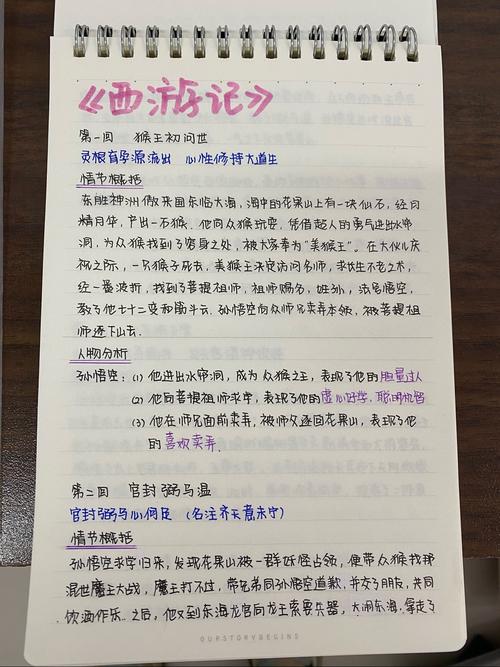 《西游记》
第一回 猴王初问世
灵根育孕源流出 心性修持大道生
情节概括
东胜神洲傲来国东临大海，海中的花果山上有一块仙石，经日
精月华，产出一石猴。他向众猴玩耍，凭借超人的勇气进出水帘
洞，为众猴找到了容身之处，被大家奉为“美猴王”。在大伙儿庆
祝之际，一只猴子死去，美猴王决定访问名师，求长生不老之术，
经一番波折，找到了菩提祖师，祖师赐名，姓孙，法号悟空，
教了他七十二变和筋斗云。孙悟空向众师兄卖弄本领，被菩提祖
师逐下山去.
人物分析
孙悟空：(1) 他进出水帘洞，成为众猴之王，表现了他的胆量过人
(2) 他向菩提祖师求学，表现了他的虚心好学、聪明机智
(3) 他在师兄面前卖弄，被师父逐回花果山，表现了他
的喜欢卖弄.
第二回 官封弼马温
官封弼马心何足 (名注齐天意未宁)
情节概括
孙悟空求学归来，发现花果山被一群妖怪占领，便带众猴找那
混世魔王大战，魔王打不过，带兄弟同孙悟空道歉，并交了朋友，共同
饮酒作乐. 之后，他又到东海龙宫向龙王索要兵器，大闹东海，拿走了
OURSTORYBEGINS